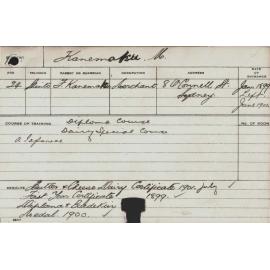 Kanematsu M.
AGE RELIGION PARENT OR GUARDIAN OCCUPATION ADDRESS
24 Shinto F. Kanematsu Merchant 8 O'Connell St. Jan. 1899
Sydney
June 1900
COURSE OF TRAINING Diploma Course NO. OF ROOM
Dairy Special Course
A Japanese
RESULTS Butter & Cheese Dairy Certificate 1901. July
First Year Certificate 1899.
Diploma &
Medal 1900.